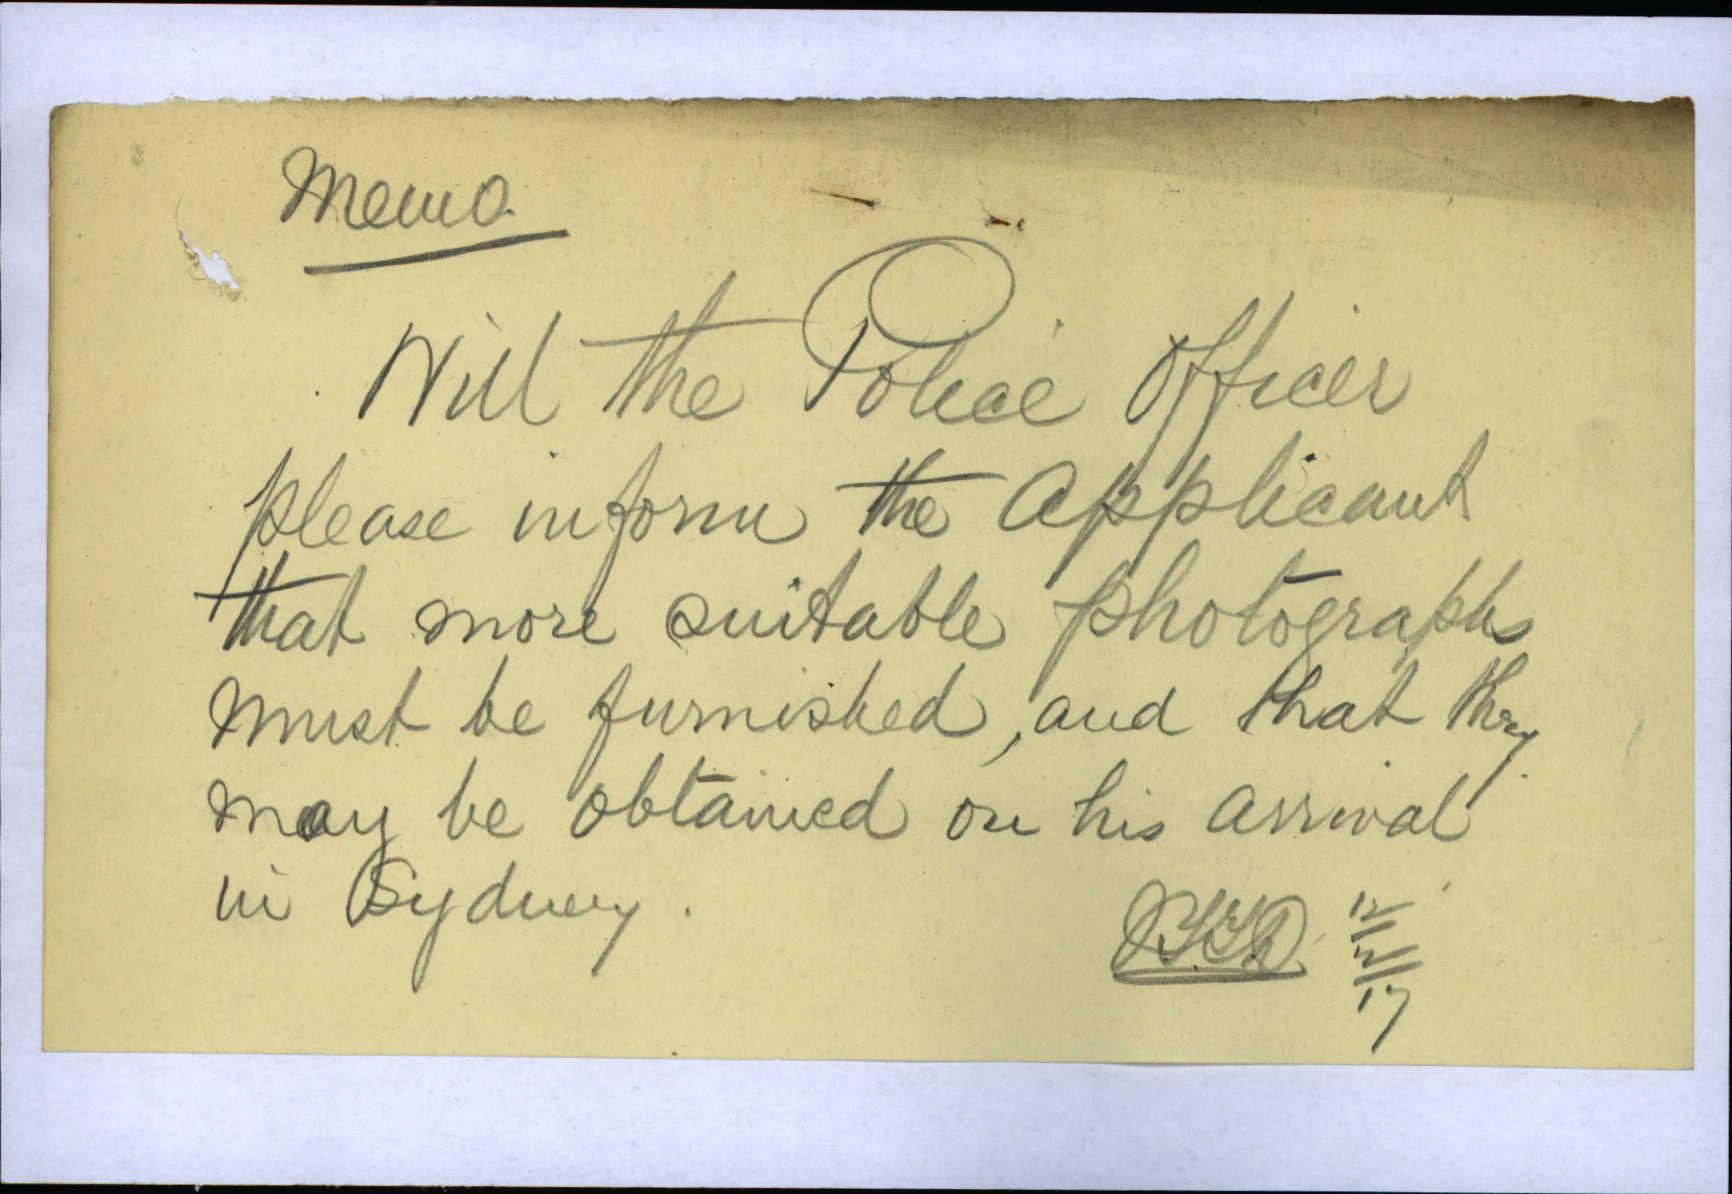 Memo
Will the Police Officer
please inform the applicant
that more suitable photographs
must be furnished, and that they
may be obtained on his arrival
in Sydney.
12/2/17